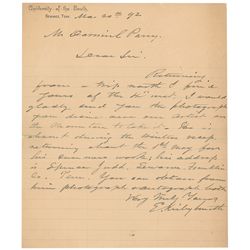 University of the South,
Sewanee, Tenn. Mar 20th 92
Mr. Cornvin L. Parry.
Dear Sir.
Returning
from a trip north I find
yours of the inst. I would
gladly send you the photograph
you desire
is absent during the winter
returning about the 1st May for
his summers work; his address
is Spencer Judd, Sewanee, Franklin
Co. Tenn. You can obtain from
him photograph & autograph both
Very Truly Yours
E. Kirby Smith